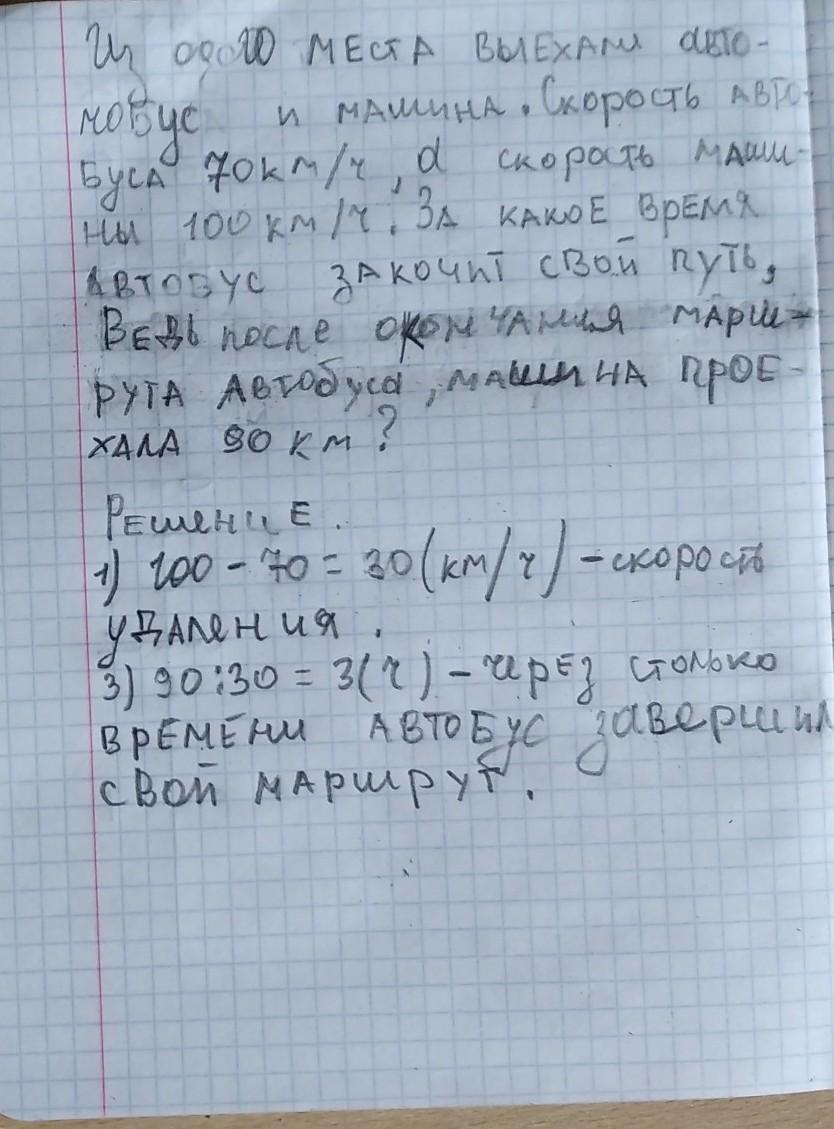 Из одого места выехали авто-
мобус и машина. Скорость авто-
буса 70 км/ч, а скорость маши-
ны 100 км/ч. За какое время
автобус закочит свой путь,
Ведь после окончания марш-
рута автобуса, машина прое-
хала 90 км?
Решение.
1) 100 - 70 = 30 (км/ч) - скорость
удаления.
3) 90 : 30 = 3 (ч) - через столько
времени автобус завершил
свой маршрут.